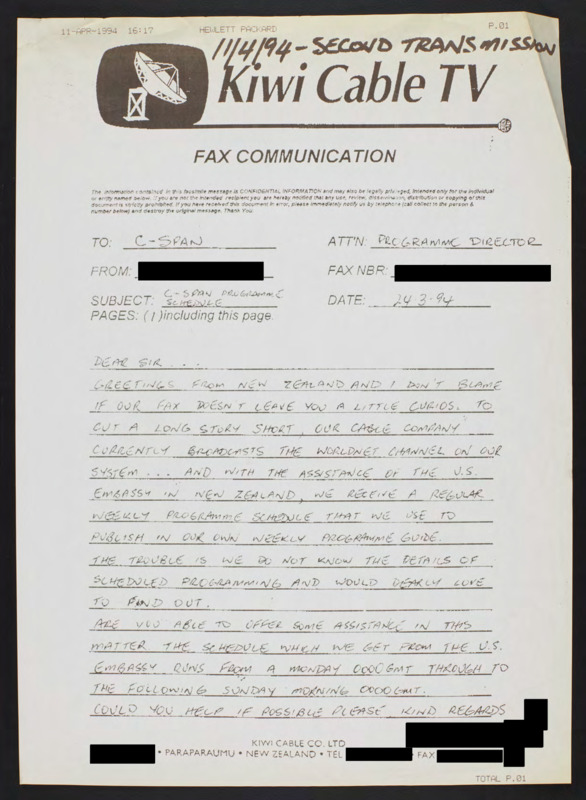 11-APR-1994 16:17 HEWLETT PACKARD P.01
11/4/94 - SECOND TRANSMISSION
Kiwi Cable TV
FAX COMMUNICATION
The information contained in this facsimile message is CONFIDENTIAL INFORMATION and may also be legally privileged, intended only for the individual
or entity named below. If you are not the intended recipient you are hereby notified that any use, review, dissemination, distribution or copying of this
document is strictly prohibited. If you have received this document in error, please immediately notify us by telephone (call collect to the person &
number below) and destroy the original message. Thank You.
TO: C-SPAN ATT'N: PROGRAMME DIRECTOR
FROM: FAX NBR:
SUBJECT: C-SPAN PROGRAMME SCHEDULE DATE: 24 3.94
PAGES: (1) including this page.
DEAR SIR ...
GREETINGS FROM NEW ZEALAND AND I DON'T BLAME
IF OUR FAX DOESN'T LEAVE YOU A LITTLE CURIOS. TO
CUT A LONG STORY SHORT, OUR CABLE COMPANY
CURRENTLY BROADCASTS THE WORLDNET CHANNEL ON OUR
SYSTEM ... AND WITH THE ASSISTANCE OF THE U.S.
EMBASSY IN NEW ZEALAND, WE RECEIVE A REGULAR
WEEKLY PROGRAMME SCHEDULE THAT WE USE TO
PUBLISH IN OUR OWN WEEKLY PROGRAMME GUIDE.
THE TROUBLE IS WE DO NOT KNOW THE DETAILS OF
SCHEDULED PROGRAMMING AND WOULD DEARLY LOVE
TO FIND OUT.
ARE YOU ABLE TO OFFER SOME ASSISTANCE IN THIS
MATTER THE SCHEDULE WHICH WE GET FROM THE U.S.
EMBASSY RUNS FROM A MONDAY 0000GMT THROUGH TO
THE FOLLOWING SUNDAY MORNING 0000GMT.
COULD YOU HELP IF POSSIBLE PLEASE KIND REGARDS
KIWI CABLE CO. LTD
• PARAPARAUMU • NEW ZEALAND • TEL • FAX
TOTAL P.01